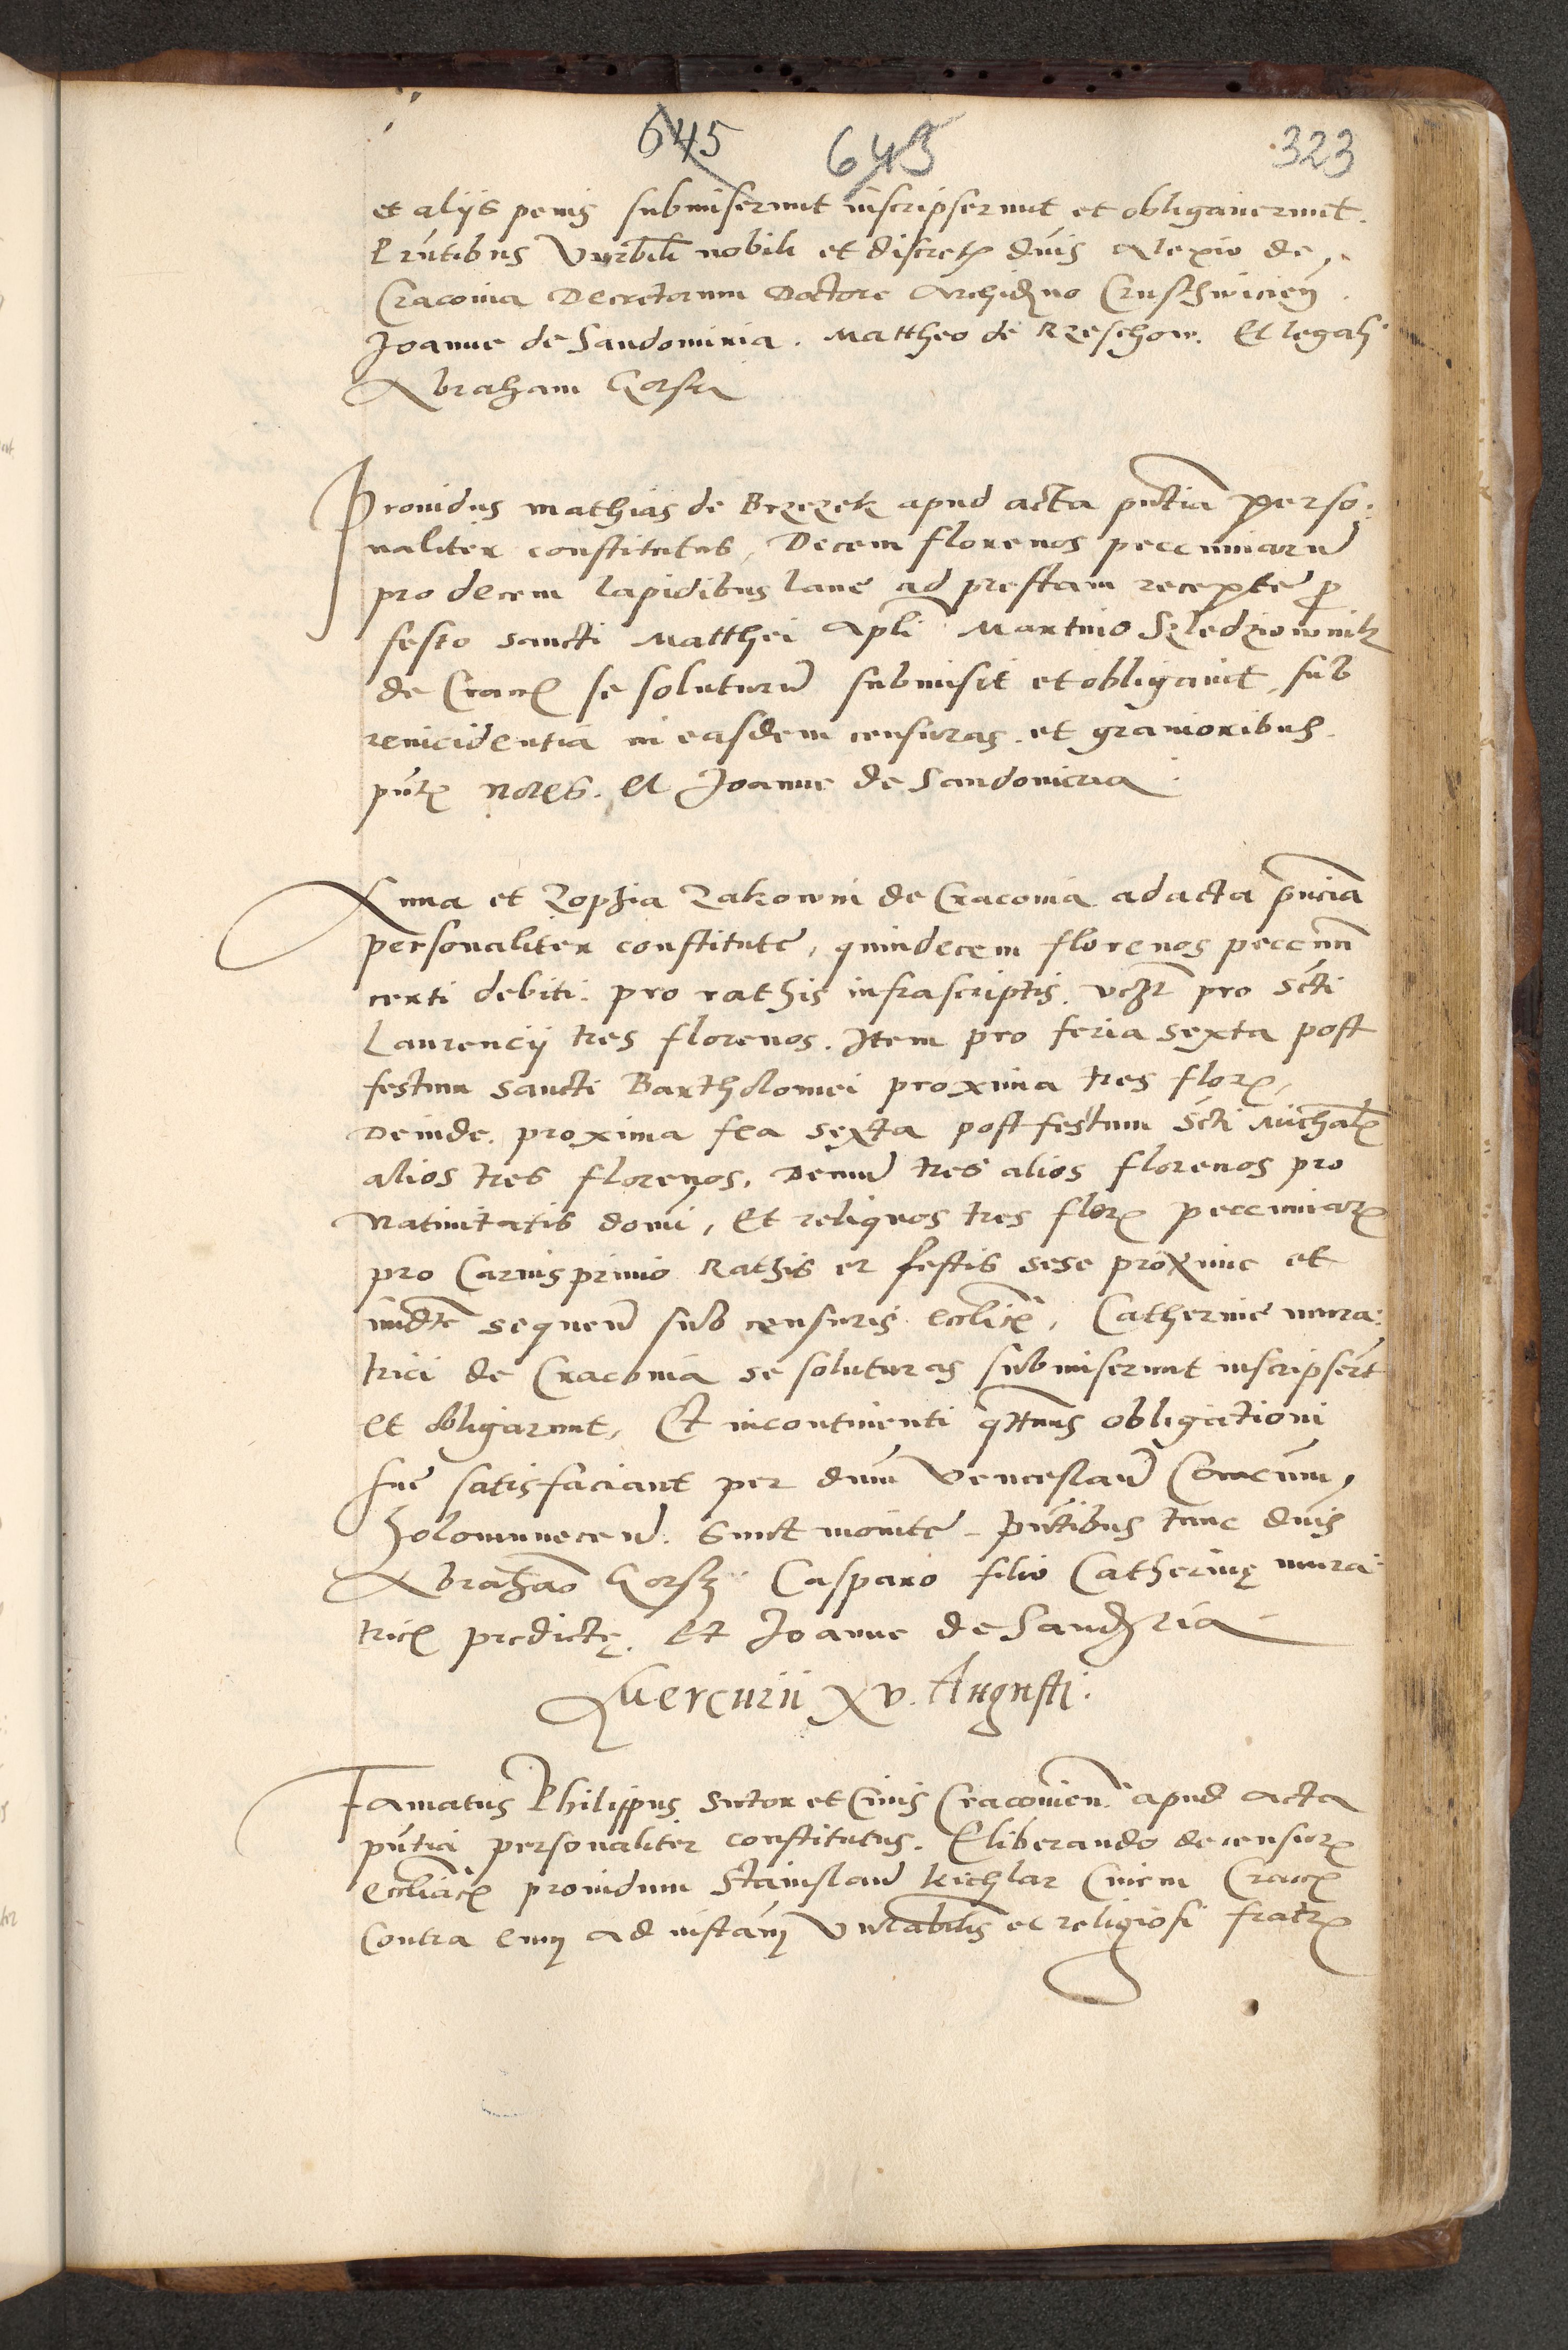 645 645 323
et alijs penis submiserunt inscripserunt et obligaverunt.
Prntibus Vnrbili nobili et discret dnis Alexio de
Cracovia Decretorum Doctore Archidno Cruschvicien.
Joanne de Sandomiria. Mattheo de Rzeschow. Et legali
Abraham Gorsky
Providus Mathias de Brzezek apud acta pntia perso:
naliter constitutus, Decem florenos peccuniaru
pro decem lapidibus lane ad prestam recepte p
festo sancti Matthei Apli Martino Szledziownik
de Crac se soluturu submisit et obligavit, sub
reincidentia in easdem censuras et gravioribus.
pnt notes. et Joanne de Sandomiria
Anna et Zophia Zakowni de Cracovia ad acta pncia
personaliter constitute, quindecem florenos peccun
certi debiti. pro rathis infrascriptis. vczt pro Scti
Laurencij tres florenos. Item pro feria sexta post
festum Sancti Bartholomei proxima tres flor,
Deinde. proxima fea sexta post festum Scti Michael
alios tres florenos. Demu tres alios florenos pro
Nativitatis domi, Et reliquos tres flor peccuniar
pro Carnisprivio Rathis et festis sese proxime et
imdte sequen sub censuris ecclice, Catherine mura:
trici de Cracovia se soluturas submiserunt inscripsert
et obligarunt, Et incontinenti qtnus obligationi
sue satisfaciant per dnum Venceslau Comcum
holomunecen. Sunt monite. Pntibus tunc dnis
Abrahao Gorsky Casparo filio Catherine mura
tric predicte. Et Joanne de Sandria
Mercurii xv. Augusti.
Famatus Philippus Sutor et Civis Cracovien. apud acta
pntia personaliter constitutus. Eliberando de censur
eccliasc providum Stanislau kichlar Civem Crac
Contra eum ad instam Vnerabilis et religiosi fratr